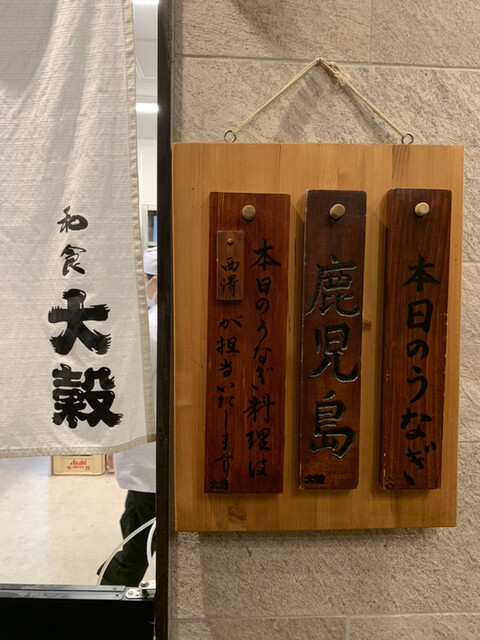 本日のうなぎ
鹿児島
本日のうなぎ料理は
が担当いたします
和食
大穀
Asahi